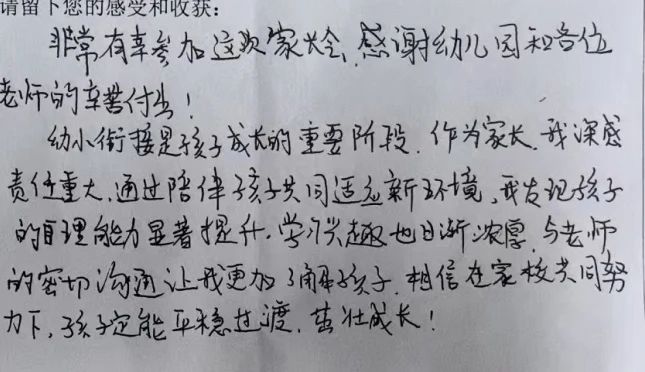 请留下您的感受和收获：
非常有幸参加这次家长会，感谢幼儿园和各位
老师的辛苦付出！
幼小衔接是孩子成长的重要阶段，作为家长，我深感
责任重大，通过陪伴孩子共同适应新环境，我发现孩子
的自理能力显著提升，学习兴趣也日渐浓厚，与老师
的密切沟通让我更加了解孩子，相信在家校共同努
力下，孩子定能平稳过渡，茁壮成长！